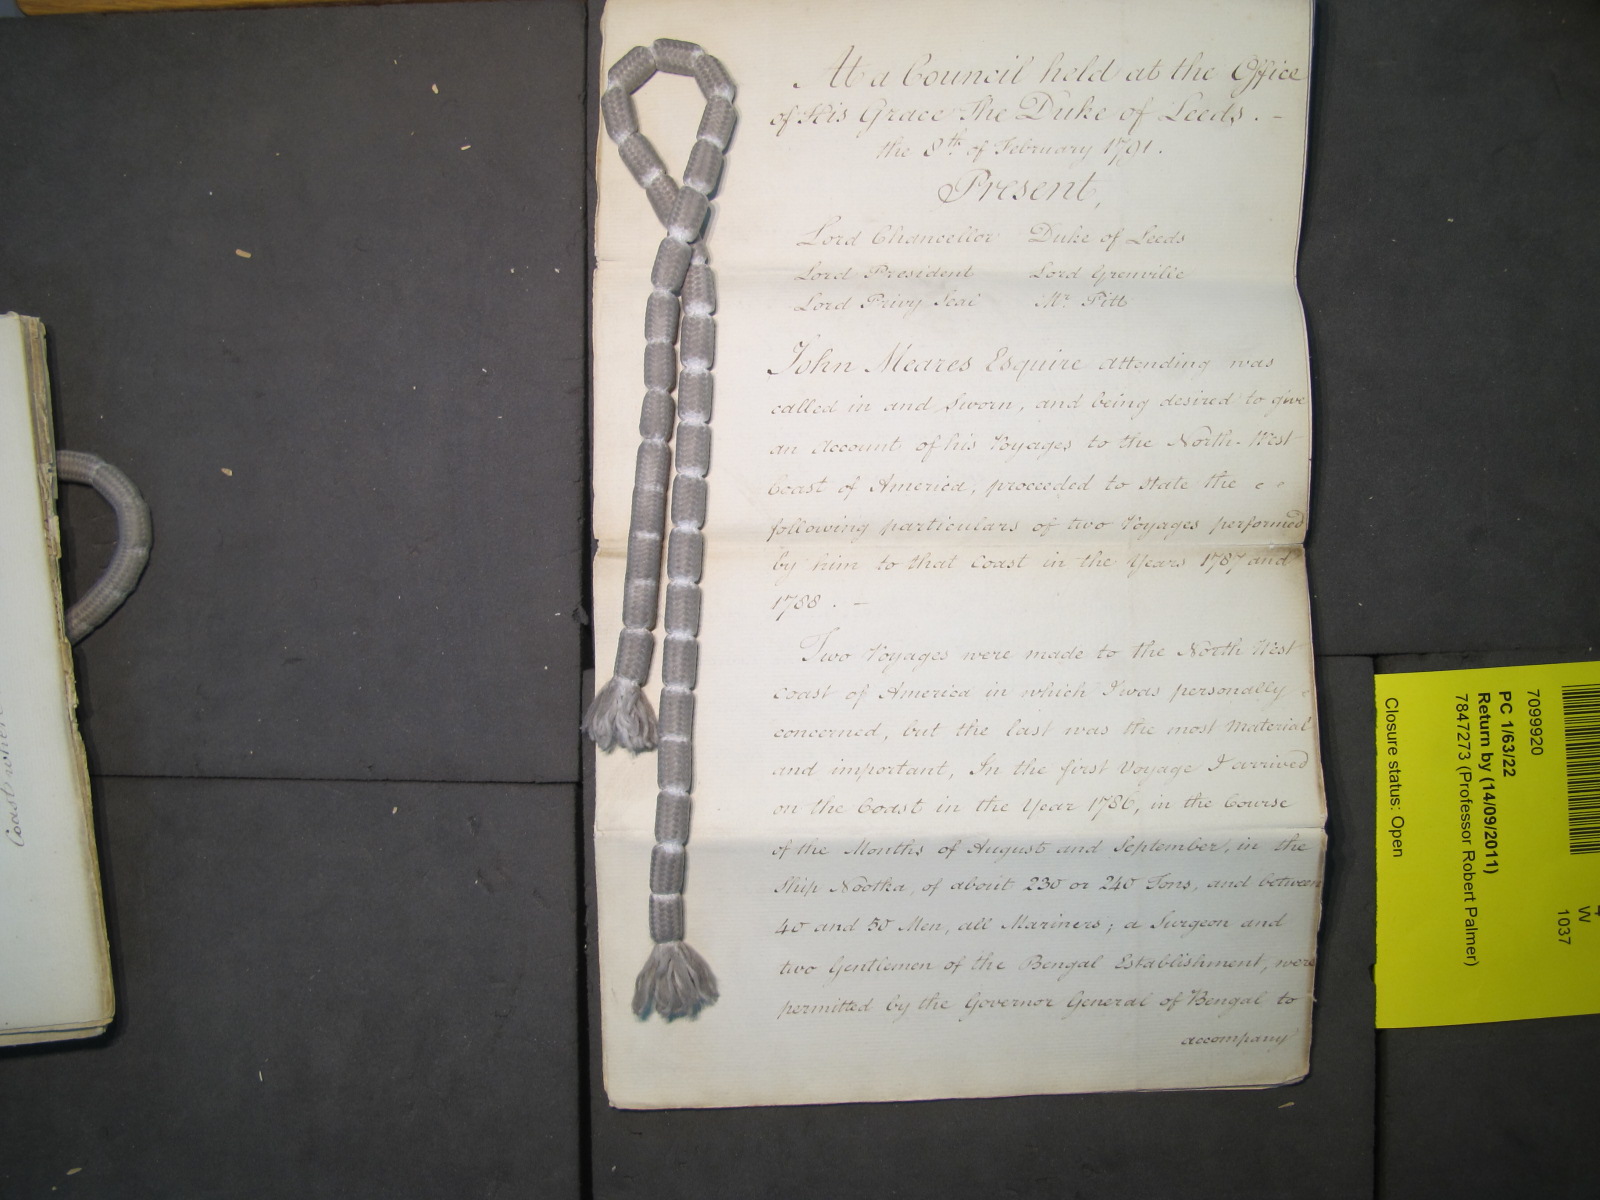 At a Council held at the Office
of His Grace The Duke of Leeds. -
the 8th of February 1791.
Present,
Lord Chancellor Duke of Leeds
Lord President Lord Grenville
Lord Privy Seal Mr. Pitt
John Meares Esquire attending was
called in and sworn, and being desired to give
an Account of his Voyages to the North-West
Coast of America, proceeded to state the
following particulars of two Voyages performed
by him to that Coast in the Years 1787 and
1788. -
Two Voyages were made to the North West
Coast of America in which I was personally
concerned, but the last was the most Material
and important, In the first Voyage I arrived
on the Coast in the Year 1786, in the Course
of the Months of August and September, in the
Ship Nootka, of about 230 or 240 Tons, and between
40 and 50 Men, all Mariners; a Surgeon and
two Gentlemen of the Bengal Establishment, were
permitted by the Governor General of Bengal to
accompany
7099920
PC 1/63/22
Return by (14/09/2011)
7847273 (Professor Robert Palmer)
Closure status: Open
W
1037
Coast where